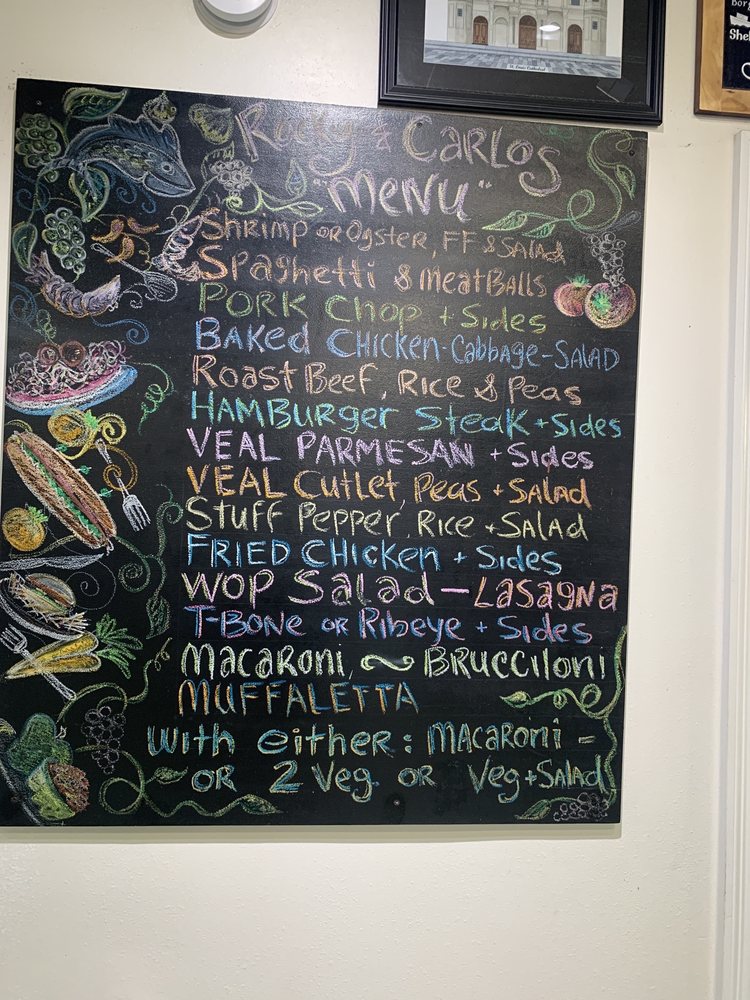 St. Louis Cathedral
Rocky & Carlos
"Menu"
Shrimp or Oyster, FF & Salad
Spaghetti & MeatBalls
Pork Chop + Sides
Baked Chicken-Cabbage-Salad
Roast Beef, Rice & Peas
Hamburger Steak + Sides
Veal Parmesan + Sides
Veal Cutlet, Peas + Salad
Stuff Pepper, Rice + Salad
Fried Chicken + Sides
Wop Salad — Lasagna
T-Bone or Ribeye + Sides
Macaroni ~ Brucciloni
Muffaletta
With either: Macaroni -
or 2 Veg. or Veg+Salad